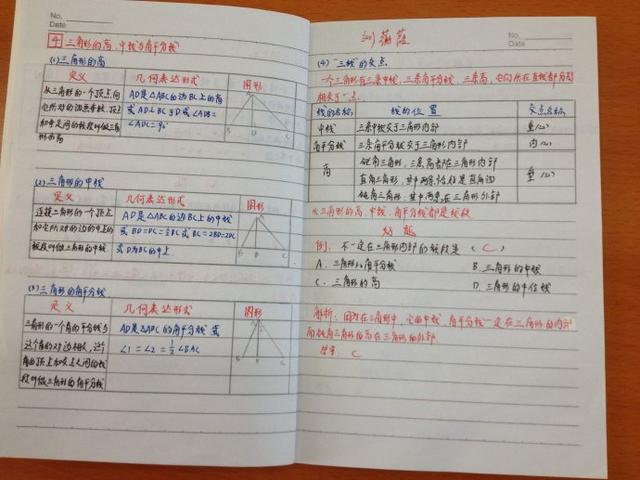 No.
Date
4 三角形的高、中线与角平分线
(1)三角形的高
定义 几何表达形式 图形
从三角形的一个顶点向
它所对的边画垂线,顶点
和垂足间的线段叫做三角
形的高
AD是△ABC的边BC上的高
或AD⊥BC于D 或∠ADB=
∠ADC=90°
B D C
(2)三角形的中线
定义 几何表达形式 图形
连接三角形的一个顶点
和它所对的边的中点的
线段叫做三角形的中线
AD是△ABC的边BC上的中线
或BD=DC=½BC或BC=2BD=2DC
或D为BC的中点
B D C
(3)三角形的角平分线
定义 几何表达形式 图形
三角形的一个角的平分线与
这个角的对边相交,这个
角的顶点和交点之间的线
段叫做三角形的角平分线
AD是△ABC的角平分线或
∠1=∠2=½∠BAC
B D C
No.
Date
刘薇薇
(4)"三线"的交点.
一个三角形有三条中线、三条角平分线、三条高,它们所在直线都分别
相交于一点.
线的名称 线的位置 交点名称
中线 三条中线交于三角形内部 重心
角平分线 三条角平分线交于三角形内部 内心
高 锐角三角形,三条高都在三角形内部 垂心
直角三角形,其中两条恰好是直角边
钝角三角形,其中两条在三角形外部
三角形的高、中线、角平分线都是线段
例:不一定在三角形内部的线段是(C)
A.三角形的角平分线 B.三角形的中线
C.三角形的高 D.三角形的中位线
解析:因为在三角形中,它的中线、角平分线一定在三角形的内部
而钝角三角形的高在三角形的外部
答案:C